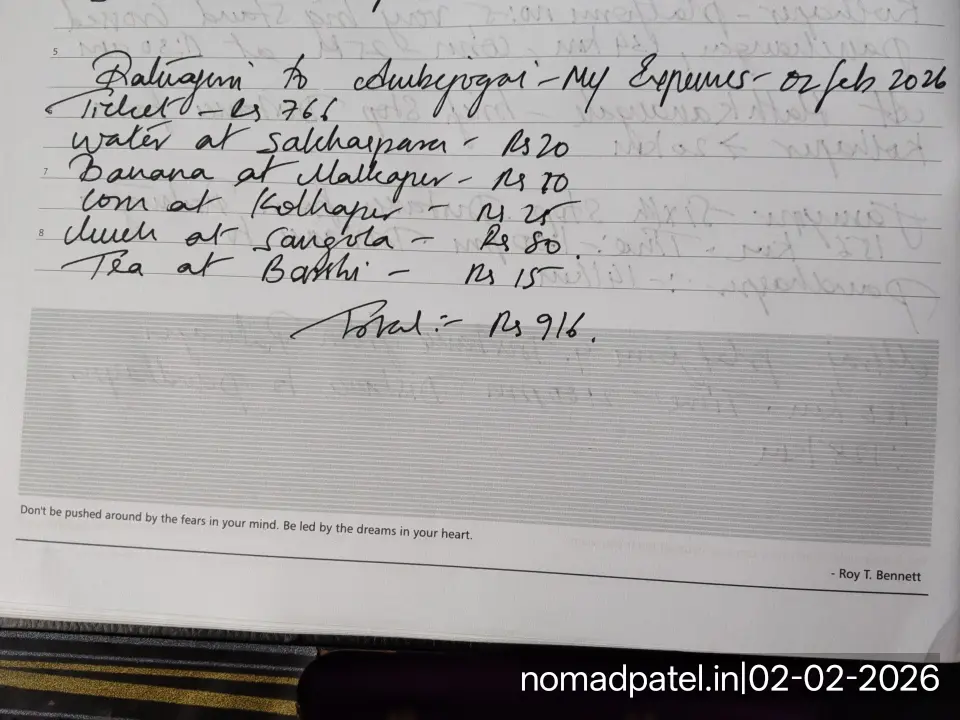 5
Ratnagiri to Ambejogai - My Expenses - 02 feb 2026
Ticket - Rs 766
water at Sakharpara - Rs 20
7
Banana at Malkapur - Rs 10
Corn at Kolhapur - Rs 25
8
lunch at Sangola - Rs 80.
Tea at Barshi - Rs 15
Total :- Rs 916.
Don't be pushed around by the fears in your mind. Be led by the dreams in your heart.
- Roy T. Bennett
nomadpatel.in|02-02-2026